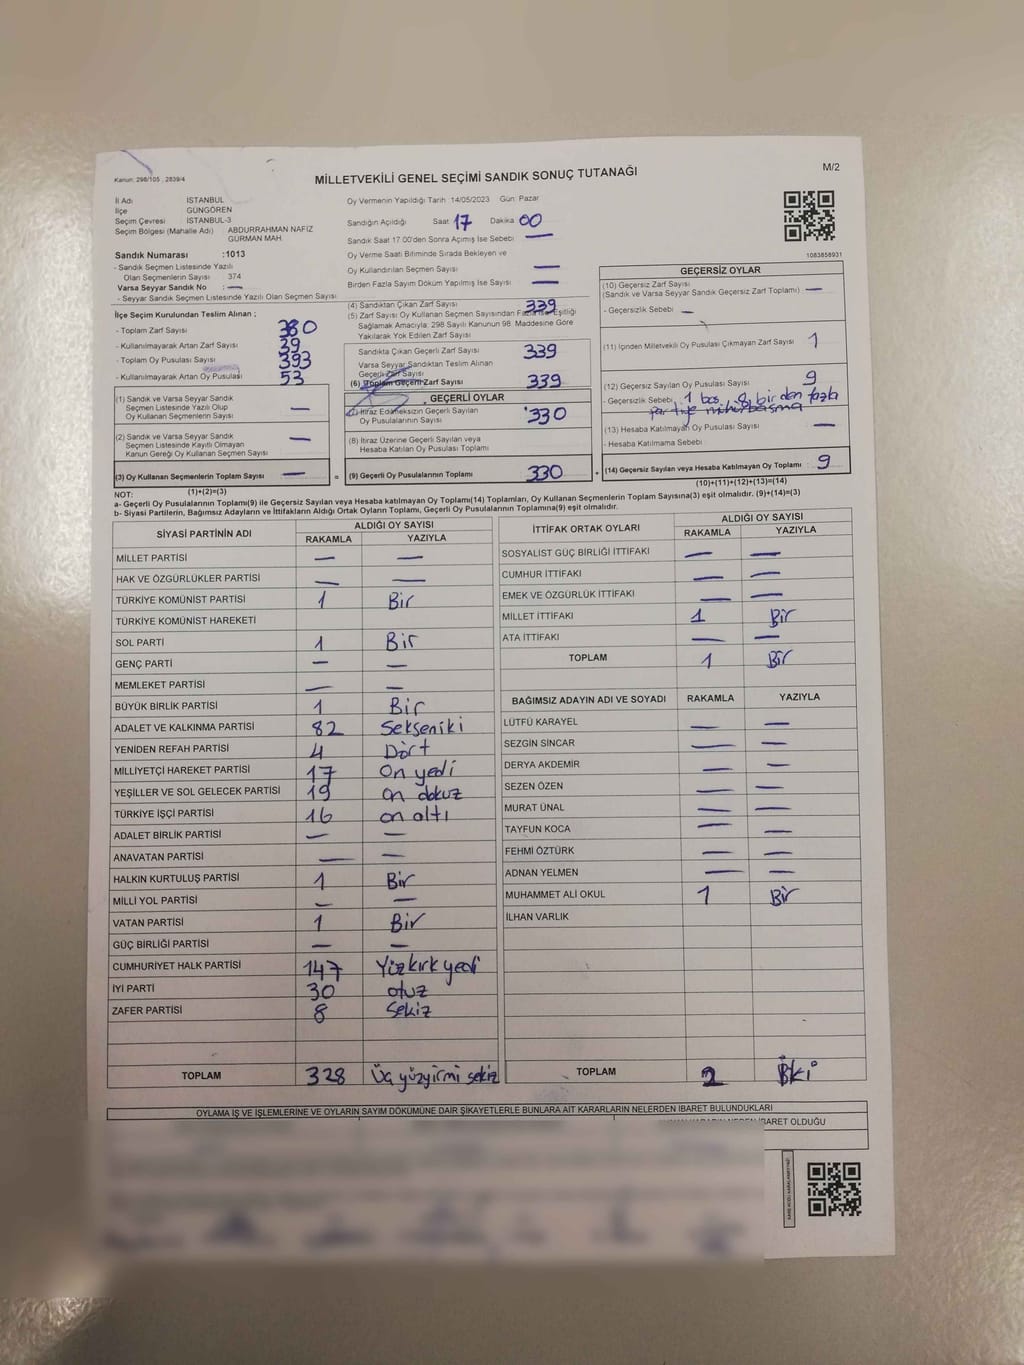 Kanun: 298/105 , 2839/4
MİLLETVEKİLİ GENEL SEÇİMİ SANDIK SONUÇ TUTANAĞI
M/2
İl Adı İSTANBUL
İlçe GÜNGÖREN
Seçim Çevresi İSTANBUL-3
Seçim Bölgesi (Mahalle Adı) ABDURRAHMAN NAFİZ GÜRMAN MAH.
Sandık Numarası :1013
- Sandık Seçmen Listesinde Yazılı
Olan Seçmenlerin Sayısı 374
Varsa Seyyar Sandık No : —
- Seyyar Sandık Seçmen Listesinde Yazılı Olan Seçmen Sayısı
İlçe Seçim Kurulundan Teslim Alınan ;
- Toplam Zarf Sayısı 380
- Kullanılmayarak Artan Zarf Sayısı 39
- Toplam Oy Pusulası Sayısı 393
- Kullanılmayarak Artan Oy Pusulası 53
(1) Sandık ve Varsa Seyyar Sandık
Seçmen Listesinde Yazılı Olup
Oy Kullanan Seçmenlerin Sayısı —
(2) Sandık ve Varsa Seyyar Sandık
Seçmen Listesinde Kayıtlı Olmayan
Kanun Gereği Oy Kullanan Seçmen Sayısı —
(3) Oy Kullanan Seçmenlerin Toplam Sayısı —
(1)+(2)=(3)
Oy Vermenin Yapıldığı Tarih 14/05/2023 Gün: Pazar
Sandığın Açıldığı Saat 17 Dakika 00
Sandık Saat 17 00'den Sonra Açımış İse Sebebi —
Oy Verme Saati Bitiminde Sırada Bekleyen ve
Oy Kullandırılan Seçmen Sayısı —
Birden Fazla Sayım Döküm Yapılmış İse Sayısı —
(4) Sandıktan Çıkan Zarf Sayısı 339
(5) Zarf Sayısı Oy Kullanan Seçmen Sayısından Fazla İse Eşitliği
Sağlamak Amacıyla: 298 Sayılı Kanunun 98. Maddesine Göre
Yakılarak Yok Edilen Zarf Sayısı
Sandıkta Çıkan Geçerli Zarf Sayısı 339
Varsa Seyyar Sandıktan Teslim Alınan
Geçerli Zarf Sayısı
(6) Toplam Geçerli Zarf Sayısı 339
GEÇERLİ OYLAR
(7) İtiraz Edilmeksizin Geçerli Sayılan
Oy Pusulalarının Sayısı 330
(8) İtiraz Üzerine Geçerli Sayılan veya
Hesaba Katılan Oy Pusulası Toplamı
= (9) Geçerli Oy Pusulalarının Toplamı 330
1083858931
GEÇERSİZ OYLAR
(10) Geçersiz Zarf Sayısı
(Sandık ve Varsa Seyyar Sandık Geçersiz Zarf Toplamı) —
- Geçersizlik Sebebi —
(11) İçinden Milletvekili Oy Pusulası Çıkmayan Zarf Sayısı 1
(12) Geçersiz Sayılan Oy Pusulası Sayısı 9
- Geçersizlik Sebebi 1 boş 8 birden fazla
partiye mühür basma
(13) Hesaba Katılmayan Oy Pusulası Sayısı —
- Hesaba Katılmama Sebebi
+ (14) Geçersiz Sayılan veya Hesaba Katılmayan Oy Toplamı : 9
(10)+(11)+(12)+(13)=(14)
NOT:
a- Geçerli Oy Pusulalarının Toplamı(9) ile Geçersiz Sayılan veya Hesaba katılmayan Oy Toplamı(14) Toplamları, Oy Kullanan Seçmenlerin Toplam Sayısına(3) eşit olmalıdır. (9)+(14)=(3)
b- Siyasi Partilerin, Bağımsız Adayların ve İttifakların Aldığı Ortak Oyların Toplamı, Geçerli Oy Pusulalarının Toplamına(9) eşit olmalıdır.
SİYASİ PARTİNİN ADI ALDIĞI OY SAYISI
RAKAMLA YAZIYLA
MİLLET PARTİSİ — —
HAK VE ÖZGÜRLÜKLER PARTİSİ — —
TÜRKİYE KOMÜNİST PARTİSİ 1 Bir
TÜRKİYE KOMÜNİST HAREKETİ
SOL PARTİ 1 Bir
GENÇ PARTİ — —
MEMLEKET PARTİSİ — —
BÜYÜK BİRLİK PARTİSİ 1 Bir
ADALET VE KALKINMA PARTİSİ 82 Sekseniki
YENİDEN REFAH PARTİSİ 4 Dört
MİLLİYETÇİ HAREKET PARTİSİ 17 On yedi
YEŞİLLER VE SOL GELECEK PARTİSİ 19 on dokuz
TÜRKİYE İŞÇİ PARTİSİ 16 on altı
ADALET BİRLİK PARTİSİ — —
ANAVATAN PARTİSİ — —
HALKIN KURTULUŞ PARTİSİ 1 Bir
MİLLİ YOL PARTİSİ — —
VATAN PARTİSİ 1 Bir
GÜÇ BİRLİĞİ PARTİSİ — —
CUMHURİYET HALK PARTİSİ 147 Yüzkırkyedi
İYİ PARTİ 30 otuz
ZAFER PARTİSİ 8 Sekiz
TOPLAM 328 Üç yüzyirmi sekiz
İTTİFAK ORTAK OYLARI ALDIĞI OY SAYISI
RAKAMLA YAZIYLA
SOSYALİST GÜÇ BİRLİĞİ İTTİFAKI — —
CUMHUR İTTİFAKI — —
EMEK VE ÖZGÜRLÜK İTTİFAKI — —
MİLLET İTTİFAKI 1 Bir
ATA İTTİFAKI — —
TOPLAM 1 Bir
BAĞIMSIZ ADAYIN ADI VE SOYADI RAKAMLA YAZIYLA
LÜTFÜ KARAYEL — —
SEZGİN SİNCAR — —
DERYA AKDEMİR — —
SEZEN ÖZEN — —
MURAT ÜNAL — —
TAYFUN KOCA — —
FEHMİ ÖZTÜRK — —
ADNAN YELMEN — —
MUHAMMET ALİ OKUL 1 Bir
İLHAN VARLIK
TOPLAM 2 İki
OYLAMA İŞ VE İŞLEMLERİNE VE OYLARIN SAYIM DÖKÜMÜNE DAİR ŞİKAYETLERLE BUNLARA AİT KARARLARIN NELERDEN İBARET BULUNDUKLARI
İBARET OLDUĞU